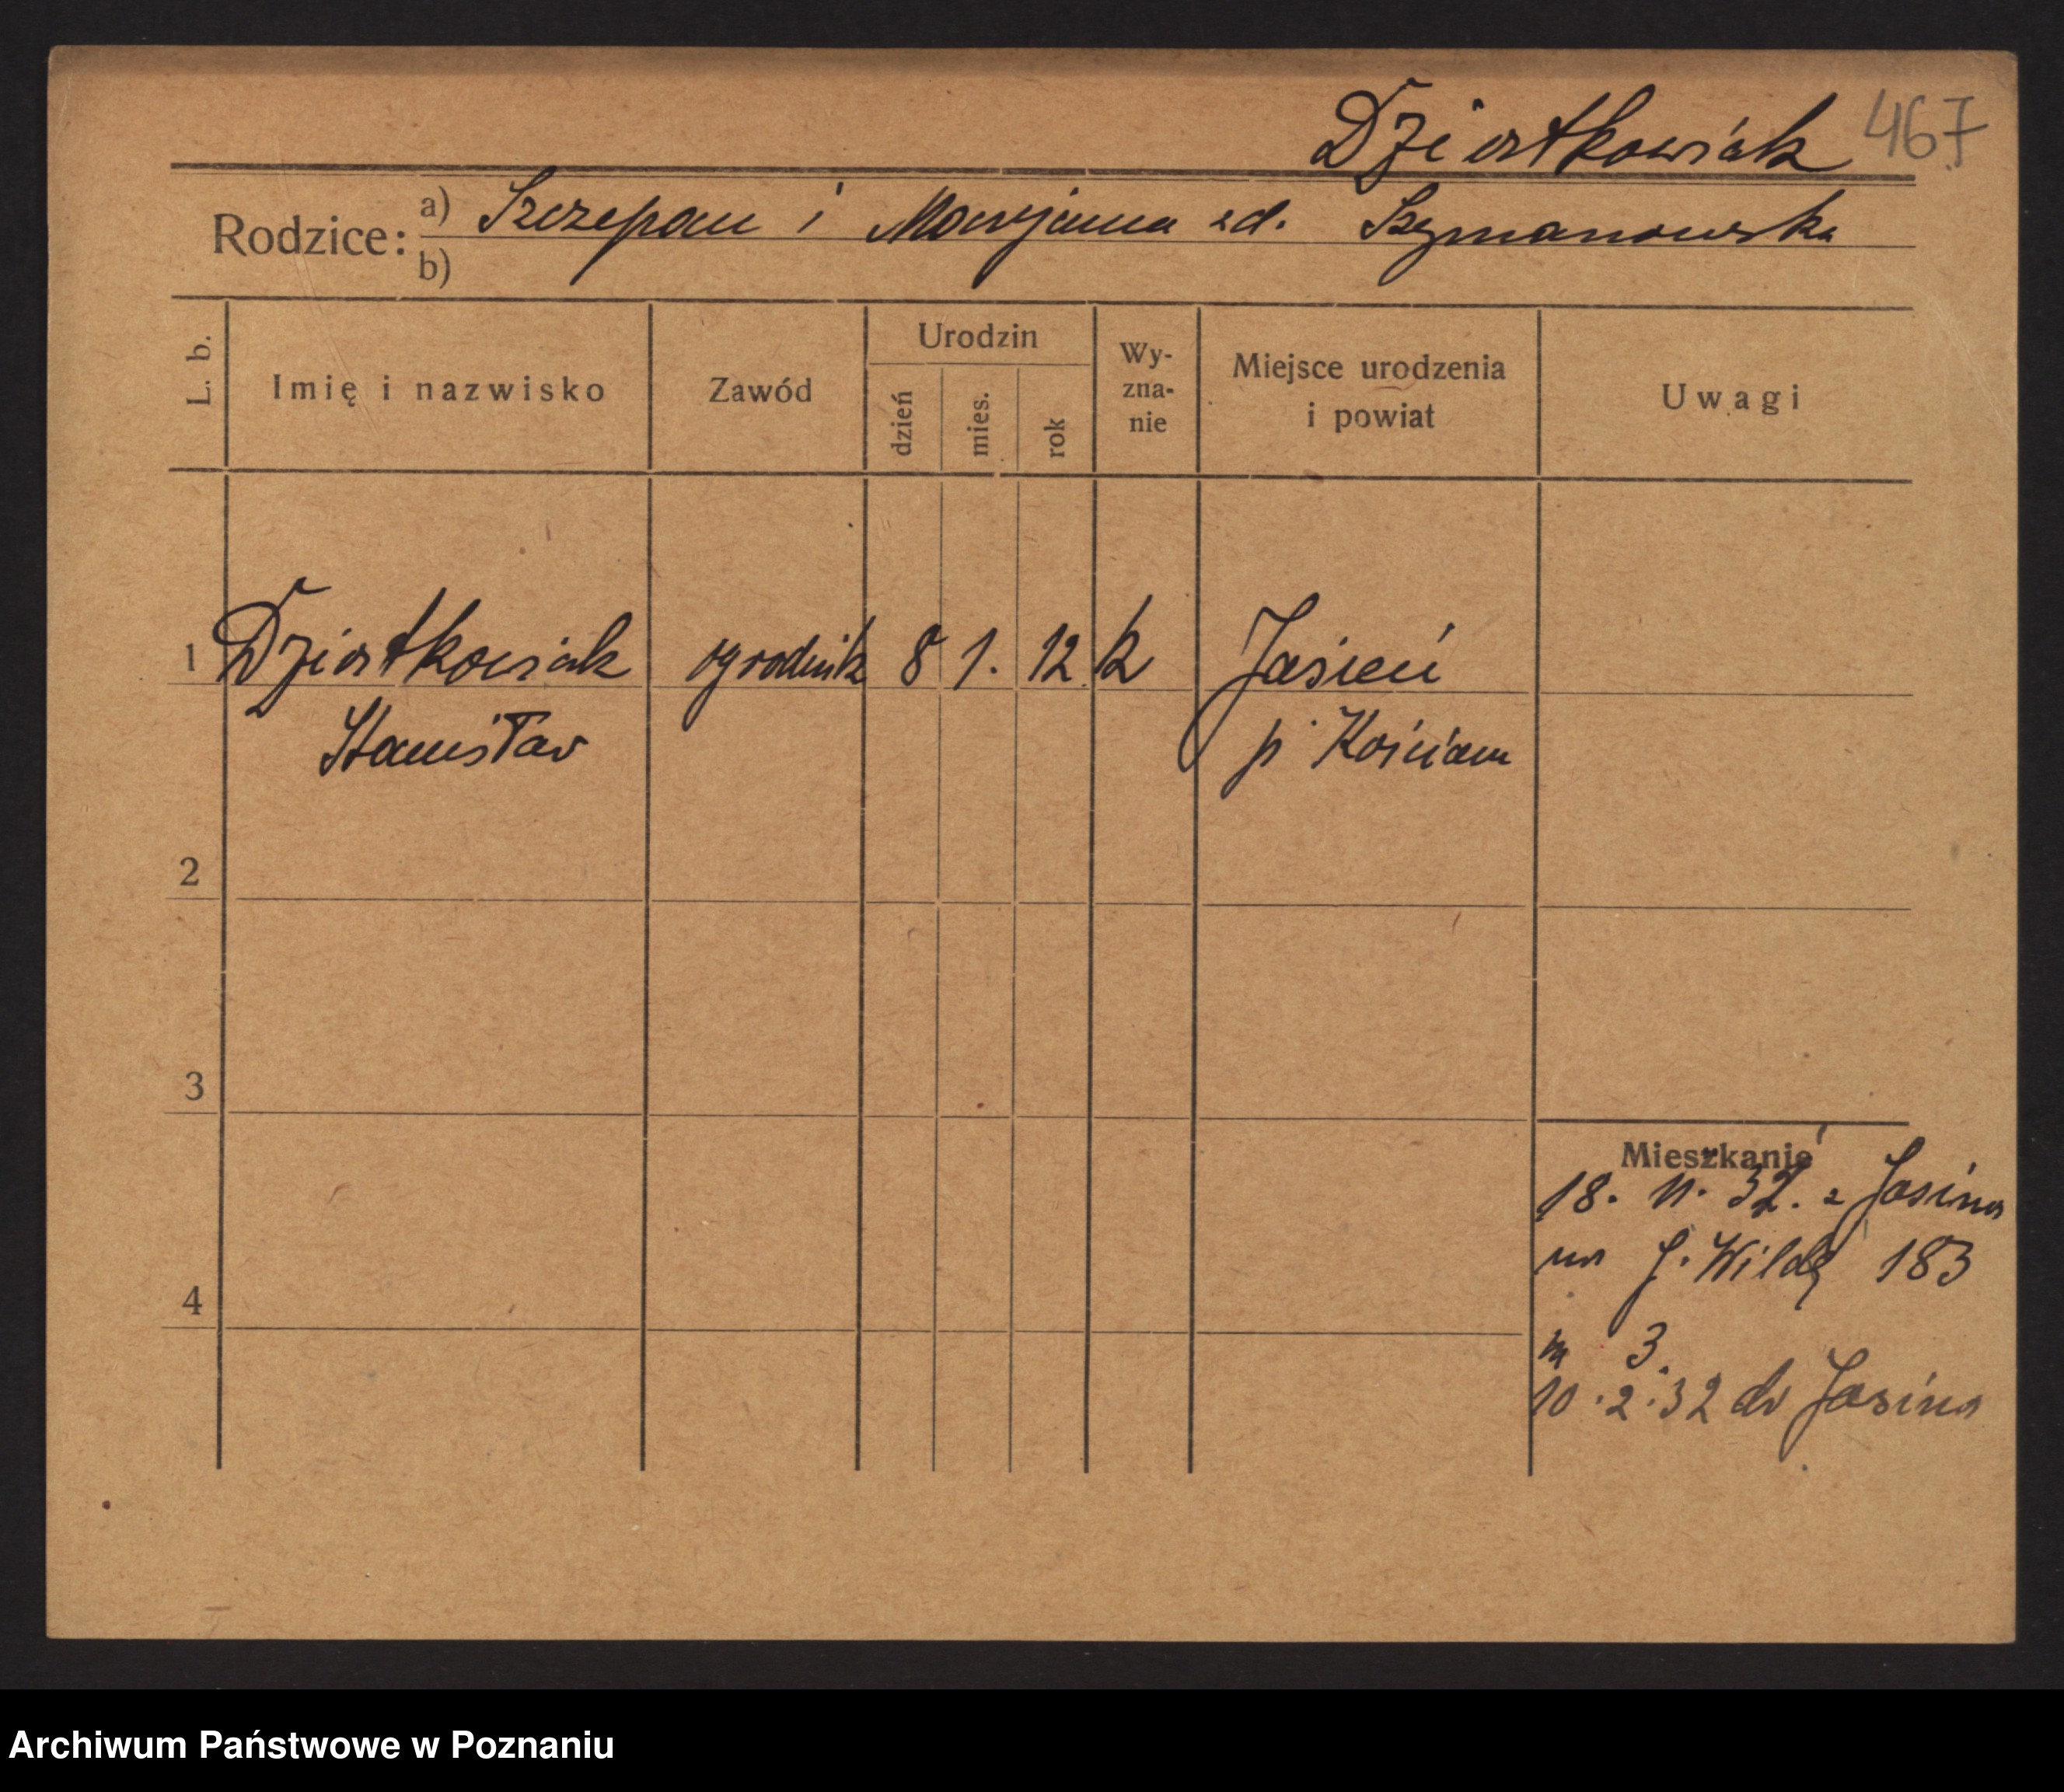 Dziatkowiak 467
Rodzice: a) Szczepan i Marjanna zd. Szymanowska
b)
L. b. Imię i nazwisko Zawód Urodzin dzień mies. rok Wy-zna-nie Miejsce urodzenia i powiat Uwagi
1 Dziatkowiak ogrodnik 8 1. 12 k Jasień
Stanisław p. Kościan
2
3
Mieszkanie
18. 11. 32. z Jasina
na G. Wildę 183
4
m 3.
10.2.32 do Jasina
Archiwum Państwowe w Poznaniu